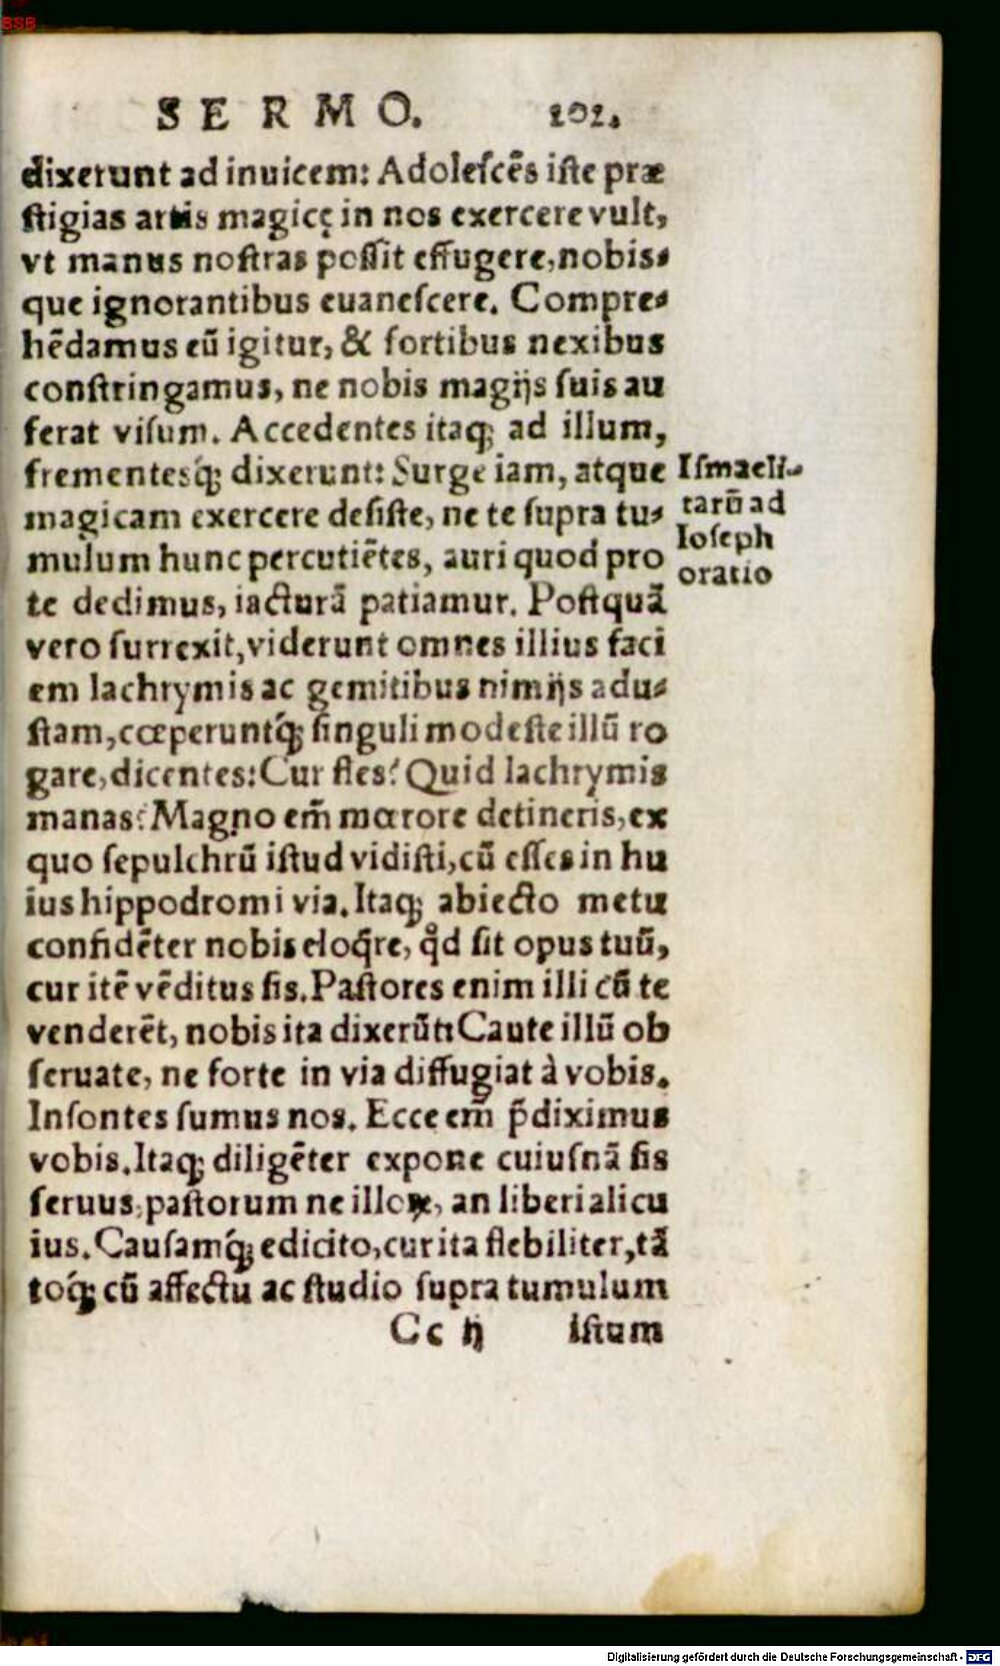 BSB
SERMO. 202.
dixerunt ad inuicem: Adoleſcẽs iſte præ
ſtigias artis magicę in nos exercere vult,
vt manus noſtras poſſit effugere, nobis⸗
que ignorantibus euaneſcere. Compre⸗
hẽdamus eũ igitur, & fortibus nexibus
conſtringamus, ne nobis magijs ſuis au
ferat viſum. Accedentes itaq; ad illum,
frementesq́; dixerunt: Surge iam, atque
magicam exercere deſiſte, ne te ſupra tu⸗
mulum hunc percutiẽtes, auri quod pro
te dedimus, iacturã patiamur. Poſtquã
vero ſurrexit, viderunt omnes illius faci
em lachrymis ac gemitibus nimijs adu⸗
ſtam, cœperuntq́; ſinguli modeſte illũ ro
gare, dicentes: Cur fles? Quid lachrymis
manas? Magno em̃ mœrore detineris, ex
quo ſepulchrũ iſtud vidiſti, cũ eſſes in hu
ius hippodromi via. Itaq; abiecto metu
confidẽter nobis eloq̃re, qͦd ſit opus tuũ,
cur itẽ vẽditus ſis. Paſtores enim illi cũ te
venderẽt, nobis ita dixerũt: Caute illũ ob
ſeruate, ne forte in via diffugiat à vobis.
Inſontes ſumus nos. Ecce em̃ p̃diximus
vobis. Itaq; diligẽter expone cuiuſnã ſis
ſeruus, paſtorum ne illoꝝ, an liberi alicu
ius. Cauſamq́; edicito, cur ita flebiliter, tã
toq́; cũ affectu ac ſtudio ſupra tumulum
Cc ij iſtum
Iſmaeli⸗
tarũ ad
Ioſeph
oratio
Digitalisierung gefördert durch die Deutsche Forschungsgemeinschaft - DFG